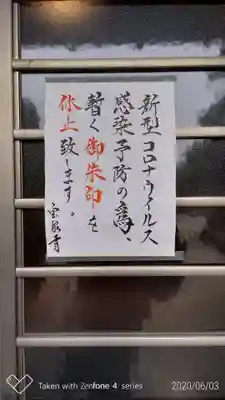 新型コロナウイルス
感染予防の為、
暫く御朱印を
休止致します。
Taken with Zenfone 4 series
2020/06/03